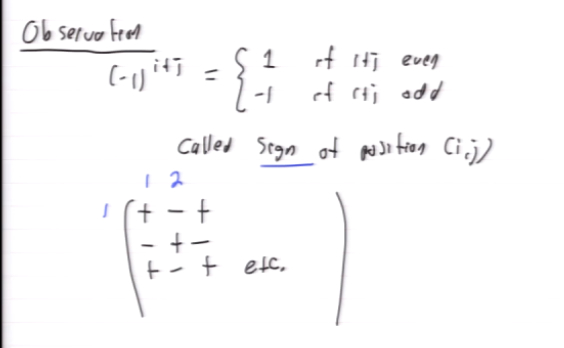 Observation
(-1)^{i+j} = { 1 if i+j even
-1 if i+j odd
Called Sign of position (i,j)
1 2
1 ( + - +
- + -
+ - + etc. )